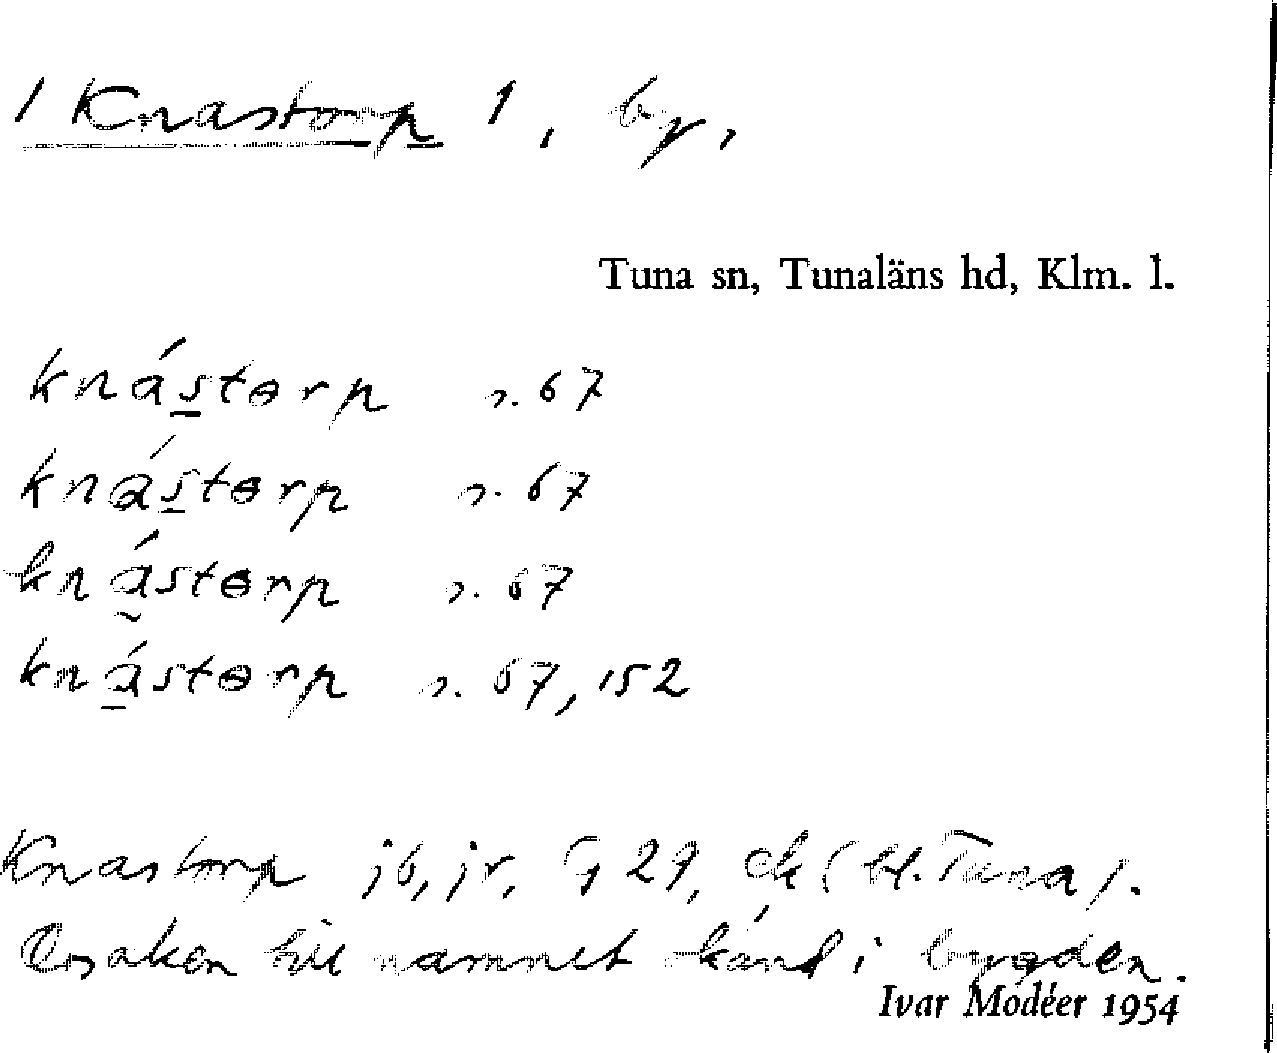 / Knastorp 1, by,
Tuna sn, Tunaläns hd, Klm. l.
knás̲tɵrp s. 67
knás̲tɵrp s. 67
kná̰stɵrp s. 67
kná̲stɵrp s. 67, 152
Knastorp jb, jr, G 29, ek (bl. Tuna).
Orsaken till namnet okänd i bygden.
Ivar Modéer 1954